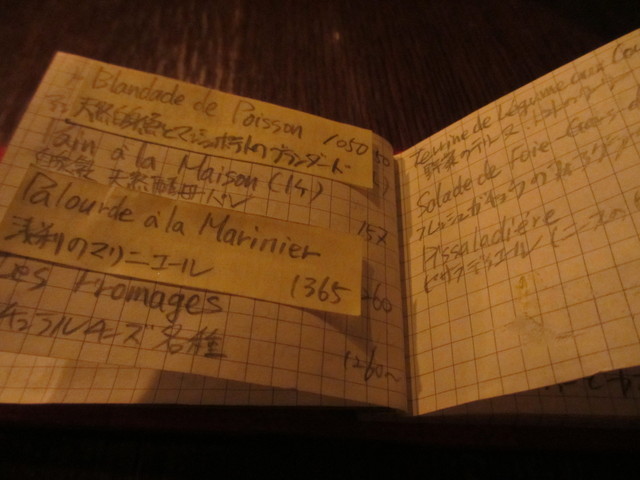 Blandade de Poisson
天然白身魚とマッシュポテトのブランダード 1050
Pain à la Maison (1ヶ)
自家製 天然酵母パン 157
Palourde à la Marinier
浅利のマリニエール 1365
Les Fromages
ナチュラルチーズ各種 1260~
Terrine de Légume aux
野菜のテリーヌ
Salade de Foie Gras
フレッシュフォアグラの
Pissaladiére
ピサラディエール (ニースの